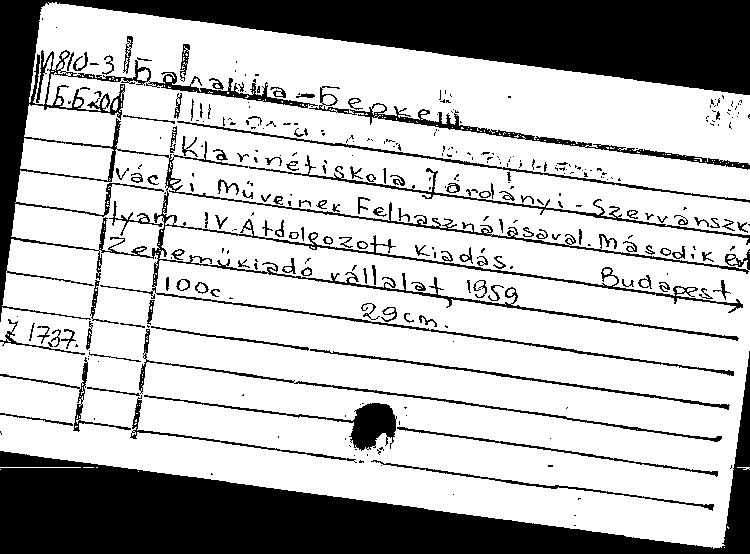 И810-3 Балашша-Беркеш
Б.Б200
Klarinétiskola. Járdányi-Szervánszk
váczi. Műveinek Felhasználásával. Második évf
lyam. IV. Átdolgozott kiadás. Budapest,
Zeneműkiadó vállalat, 1959
100c. 29cm.
Z 1737.